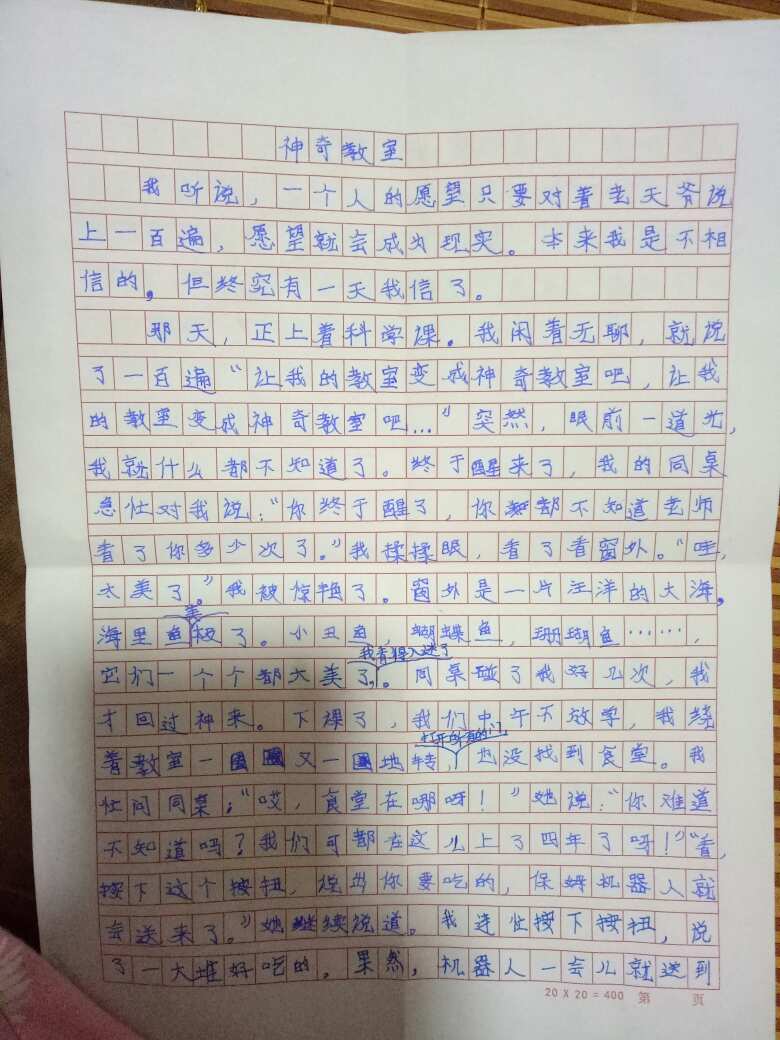 神奇教室
我听说，一个人的愿望只要对着老天爷说
上一百遍，愿望就会成为现实。本来我是不相
信的。但终究有一天我信了。
那天，正上着科学课。我闲着无聊，就说
了一百遍“让我的教室变成神奇教室吧，让我
的教室变成神奇教室吧…”突然，眼前一道光，
我就什么都不知道了。终于醒来了，我的同桌
急忙对我说：“你终于醒了，你都不知道老师
看了你多少次了。”我揉揉眼，看了看窗外。“哇，
太美了。”我被惊艳了。窗外是一片汪洋的大海。
美
海里鱼极了。小丑鱼，蝴蝶鱼，珊瑚鱼……，
我看得入迷了
它们一个个都太美了。同桌碰了我好几次，我
才回过神来。下课了，我们中午不放学，我绕
打开所有的门
着教室一圈又一圈地转，也没找到食堂。我
忙问同桌：“哎，食堂在哪呀！”她说：“你难道
不知道吗？我们可都在这儿上了四年了呀！”“看，
按下这个按扭，说出你要吃的，保姆机器人就
会送来了。”她继续说道。我连忙按下按扭，说
了一大堆好吃的。果然，机器人一会儿就送到
20 X 20 = 400 第 页